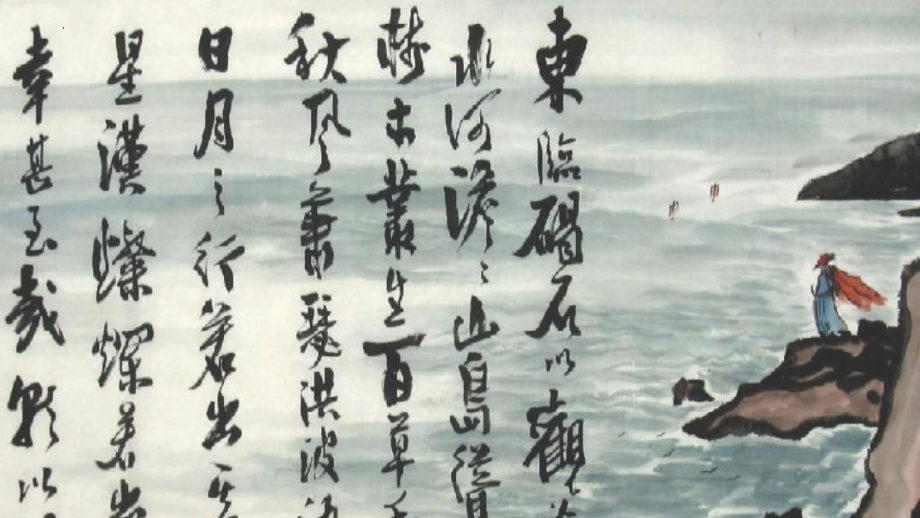 東臨碣石以觀
水何澹々山島聳
樹木叢生百草
秋風蕭瑟洪波
日月之行若出其
星漢燦爛若出
幸甚至哉歌以